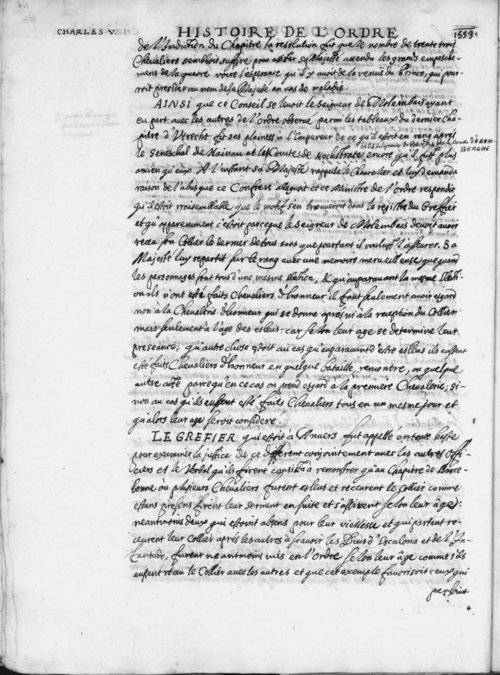 CHARLES V. HISTOIRE DE L'ORDRE 1553.
de l'Induction du Chapitre la resolution fut que le nombre de trente trois
Chevaliers sembloit suffire pour assister sa Majesté attendu les grands empesche-
mens de la guerre voire l'esperance qu'il y avoit de la venue du Prince, qui pour-
roit presider au nom de sa Majesté en cas de maladie.
AINSI que ce Conseil se levoit le Seigneur de Molembais ayant
eu part avec les autres de l'Ordre observé parmi les tableaux du dernier Cha-
pitre d'Utrecht fit ses plaintes a l'Empereur de ce qu'il estoit en rang après
et les seigneurs de
BERGHE
le Seneschal de Hainau et les Comtes de Hochstrate encore qu'il fust plus
ancien qu'eux. A l'instant sa Majesté rappella le Chancelier et luy demanda
raison de l'abus que ce Confrere alleguoit et ce Ministre de l'Ordre respondit
qu'il estoit vraisemblable que le motif s'en trouveroit dans le registre du Greffier
et qu'apparemment c'estoit parceque le Seigneur de Molembais devoit avoir
receu son Collier le dernier de tous sans que pourtant il voulust l'asseurer. Sa
Majesté luy repartit sur le rang avec une memoire merveilleuse que quand
les personnages sont tous d'une mesme Election, & qu'auparavant la mesme Elec-
tion ils n'ont esté faits Chevaliers d'honneur il faut seulement avoir esgard
non a la Chevalerie d'honneur qui se donne après ni a la reception du Collier
mais seulement a l'âge des esleus: car selon leur age se determine leur
preseance; qu'autre chose estoit au cas qu'auparavant d'estre esleus ils eussent
esté faits Chevaliers d'honneur en quelque bataille, rencontre, ou quelque
autre acte parcequ'en ce cas on prend esgard a la premiere Chevalerie, si-
non au cas qu'ils eussent esté faits Chevaliers tous en un mesme jour et
qu'alors leur age seroit consideré.
LE GREFIER qui estoit à Anvers fut appellé en toute haste
pour examiner la justice de ce different conjointement avec les autres Offi-
ciers et le Verbal qu'ils firent consista a remonstrer qu'au Chapitre de Barce-
lonne ou plusieurs Chevaliers furent esleus et receurent le Collier comme
estans presens firent leur serment en suite et s'assirent selon leur âge:
neantmoins deux qui estoient absens pour leur vieillesse et qui partant re-
ceurent leur Collier après les autres à scavoir les Ducs d'Escalona et de l'In-
fantado, furent neantmoins mis en l'Ordre selon leur âge comme s'ils
eussent receu le Collier avec les autres et que cet exemple favorisoit ceux qui